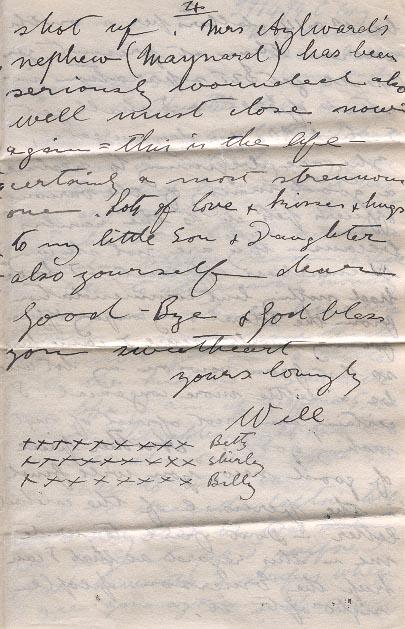 4
shot up. Mrs Aylward's
nephew (Maynard) has been
seriously wounded also
well must close now
again = this is the life -
certainly a most strenuous
one. Lots of love & kisses & hugs
to my little Son & Daughter
also yourself dear
Good-Bye & God bless
you sweetheart
yours lovingly
Will
xxxxxxxxxx Betty
xxxxxxxxxx Shirley
xxxxxxxxx Billy